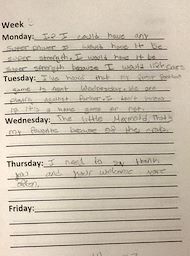 Week 2
Monday: If I could have any
super power I would have it be
super strength. I would have it be
super strength because I would lift cars
Tuesday: I've heard that my first football
game is next Wednesday. We are
playing against Parker. I don't know
if it's a home game or not.
Wednesday: The little Mermaid. That's
my favorite because of the crab.
Thursday: I need to say thank
you and your welcome more
often.
Friday: